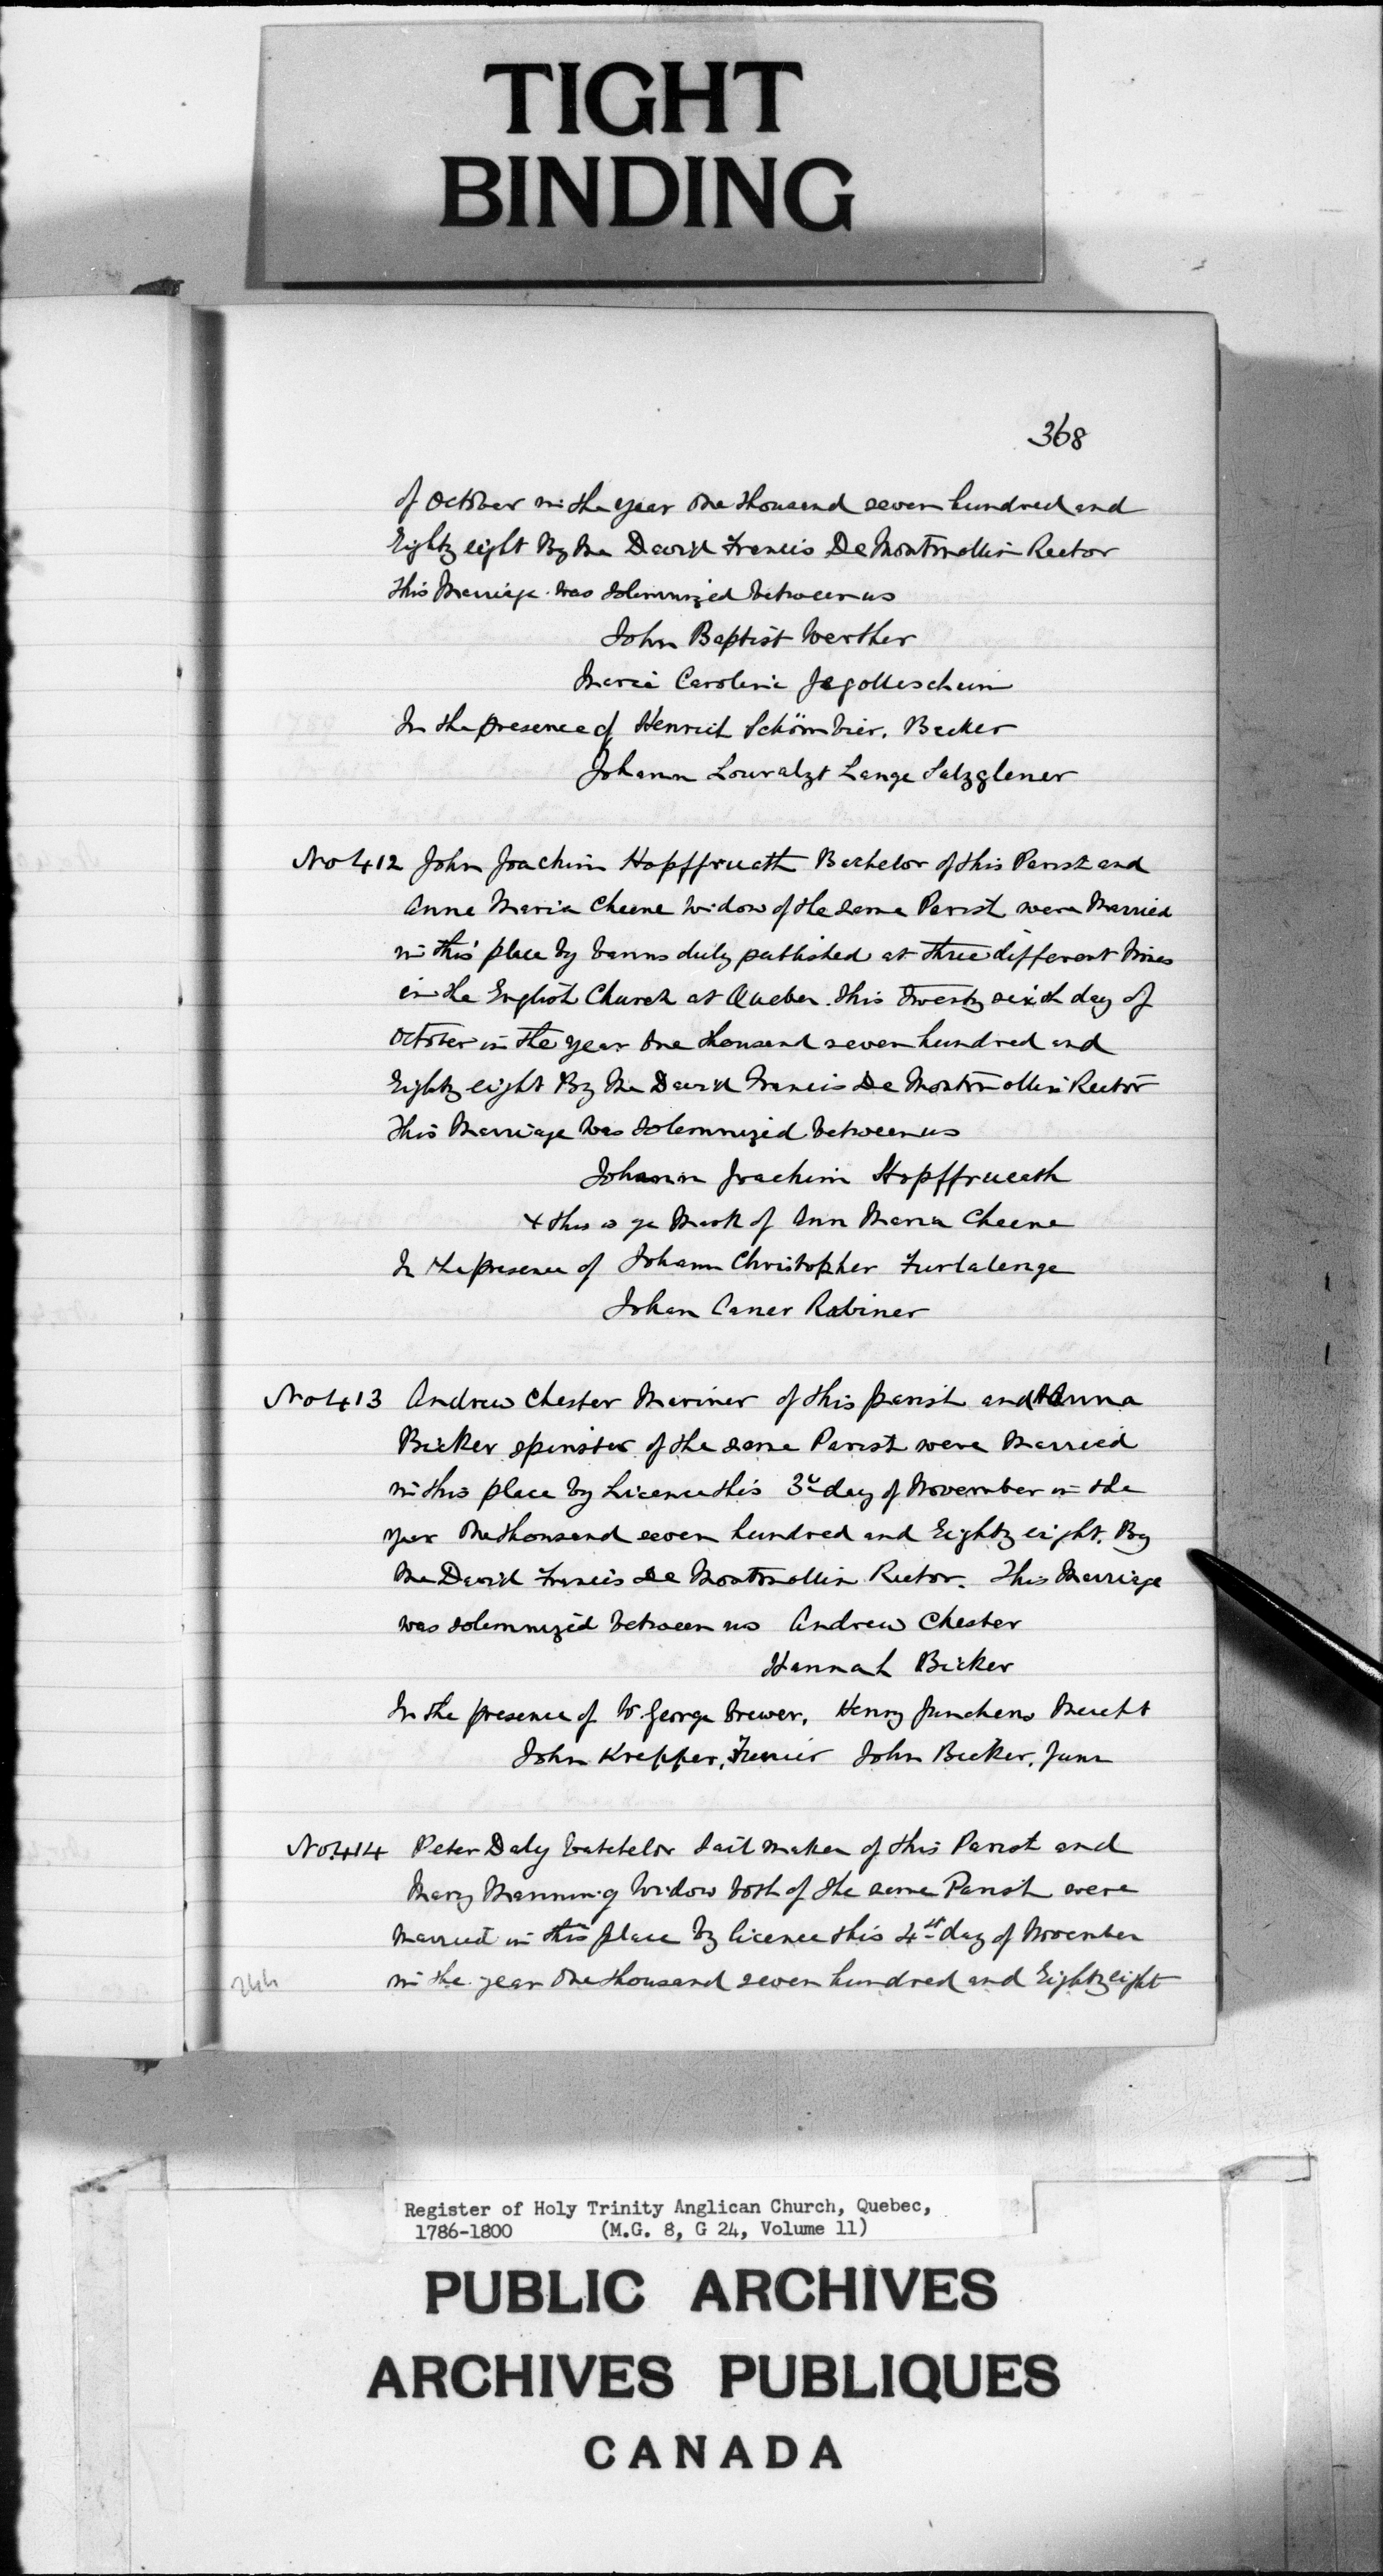 TIGHT
BINDING
368
of October in the year One thousand seven hundred and
Eighty eight By Me David Francis De Montmollin Rector
This Marriage was Solemnized between us
John Baptist Werther
Maria Carolina
In the presence of Henrich Becker
Johann Lange
No 412 John Joachim Hopffrueth Bachelor of this Parish and
Anne Maria Cheene Widow of the same Parish were Married
in this place by banns duly published at three different times
in the English Church at Quebec this twenty sixth day of
October in the year One thousand seven hundred and
Eighty eight By Me David Francis De Montmollin Rector
This Marriage was Solemnized between us
Johann Joachim Hopffrueath
x this is ye Mark of Ann Maria Cheene
In the presence of Johann Christopher
Johan Caner Rabiner
No 413 Andrew Chester Mariner of this parish and Hanna
Bicker spinster of the same Parish were Married
in this place by Licence this 3d day of November in the
year One thousand seven hundred and Eighty eight. By
Me David Francis De Montmollin Rector. This Marriage
was solemnized between us Andrew Chester
Hannah Bicker
In the presence of W. George Brewer, Henry Juncheno Mercht
John Krepper, John Bicker, Junr
No. 414 Peter Daly batchelor Sail maker of this Parish and
Mary Manning Widow both of the same Parish were
Married in this place by licence this 4th day of November
in the year One thousand seven hundred and Eighty eight
244
Register of Holy Trinity Anglican Church, Quebec,
1786-1800 (M.G. 8, G 24, Volume 11)
PUBLIC ARCHIVES
ARCHIVES PUBLIQUES
CANADA